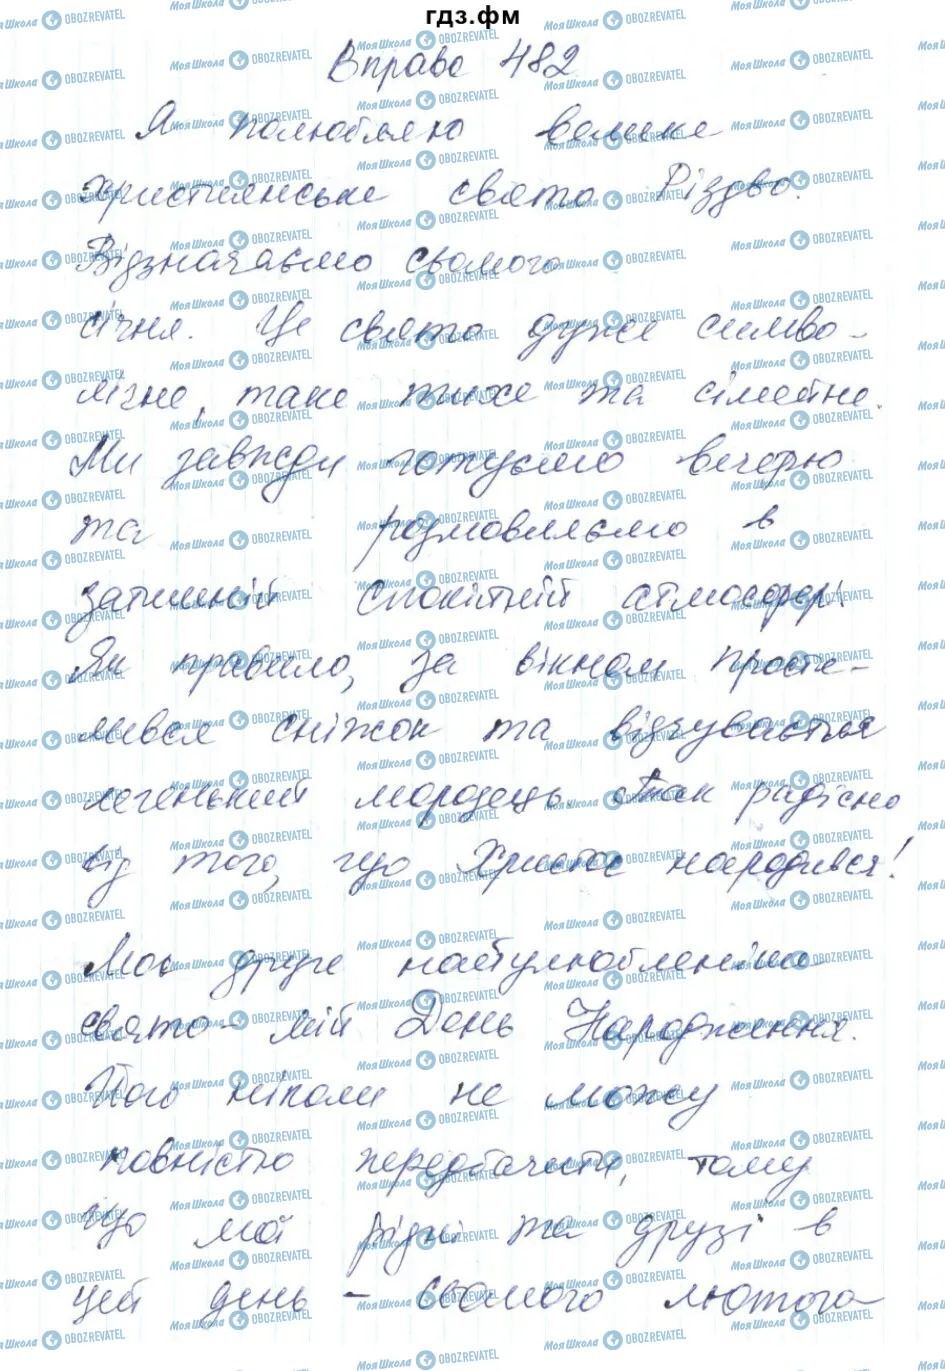 гдз.фм
Вправа 482
Я полюбляю велике
християнське свято Різдво.
Відзначаємо сьомого
січня. Це свято дуже симво-
лічне, таке тихе та сімейне.
Ми завжди готуємо вечерю
та розмовляємо в
затишній спокійній атмосфері.
Як правило, за вікном
сніжок та відчувається
легенький морозець. Так радісно
від того, що Христос народився!
Моє друге найулюбленіше
свято - мій День Народження.
Його ніколи не можу
повністю передбачити, тому
що мої рідні та друзі в
цей день - сьомого лютого